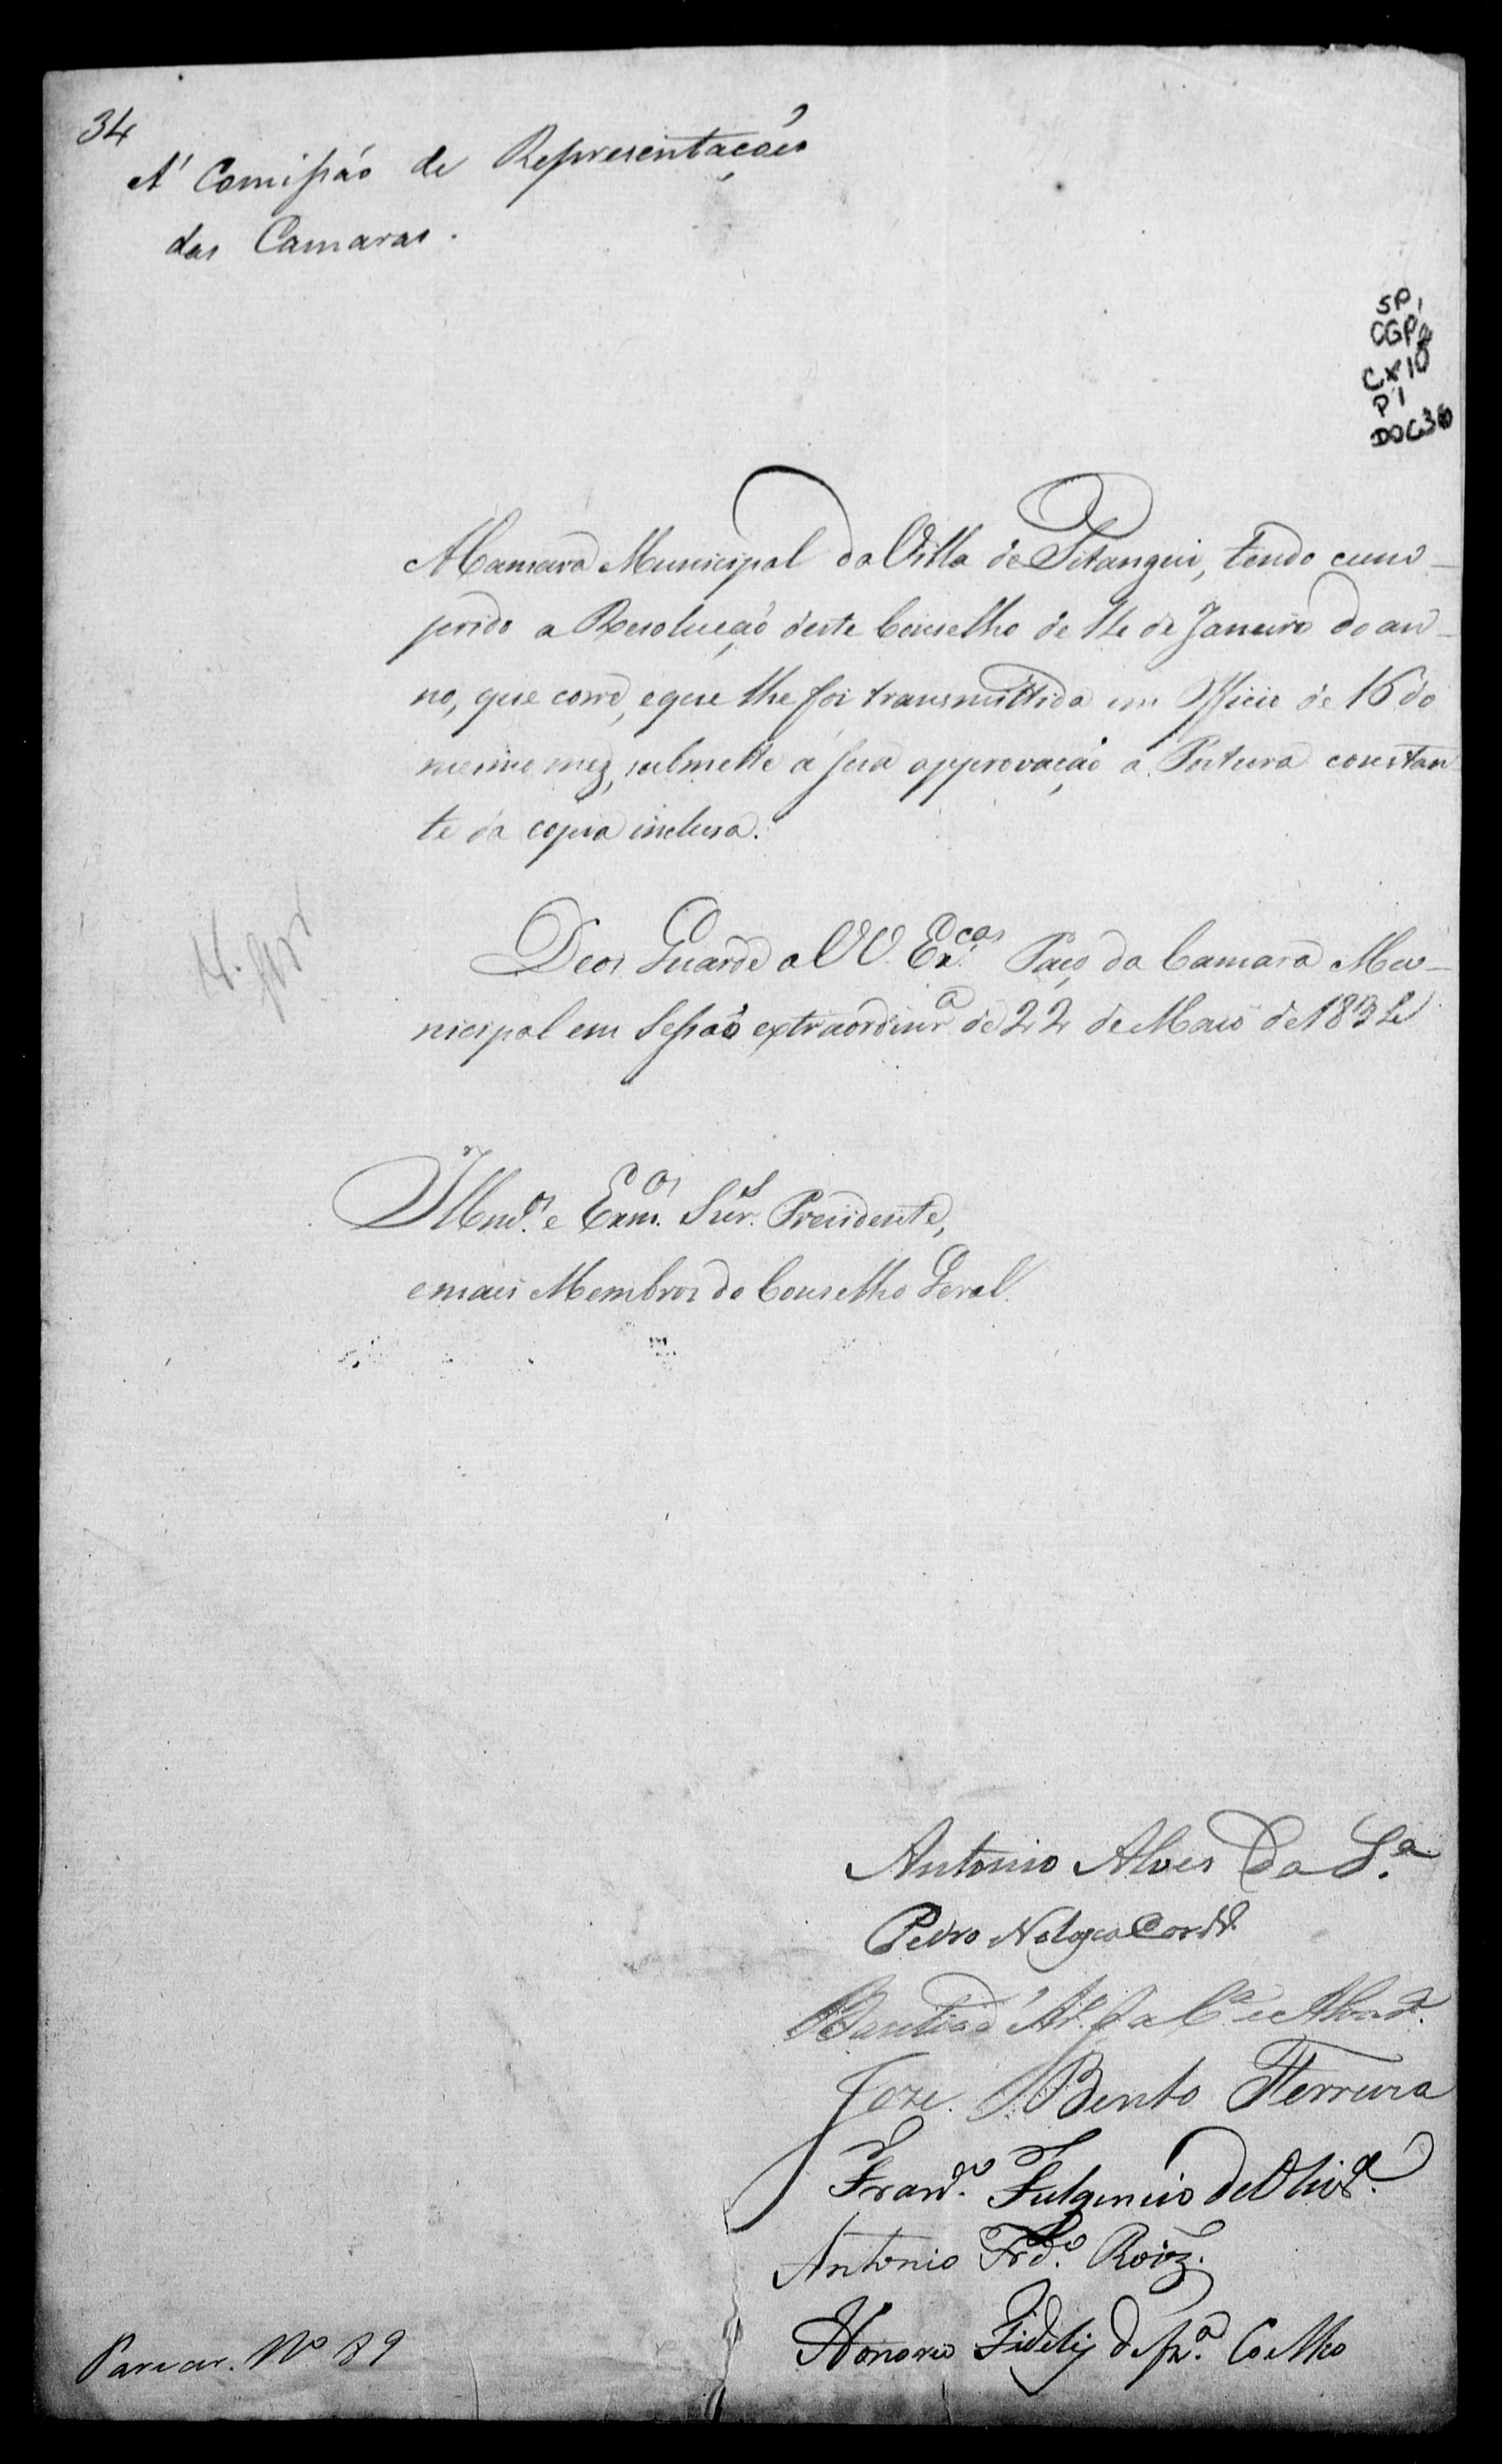 34
A' Comissão de Representações
das Camaras.
SP,
CGP2
CX10
P1
DOC30
A Camara Municipal da Villa de Pitangui, tendo cum-
prido a Resolução deste Conselho de 14 de Janeiro do an-
no, que corre, e que lhe foi transmittida em Officio de 16 do
mesmo mez, submette á sua approvação a Postura constan
te da copia inclusa.
Deos Guarde a VV. Ex.cas Paço da Camara Mu-
nicipal em Sessão extraordinr.a de 22 de Maio de 1832
Illmos. e Exmos. Snrs. Presidente,
e mais Membros do Conselho Geral.
Antonio Alves da S.a
Pedro Nolasco
Joze Bento Ferreira
Franco. Fulgencio de Oliv.a
Antonio Frd.o Roiz.
Honorio Fidelis de Coelho
Parecer. No 89